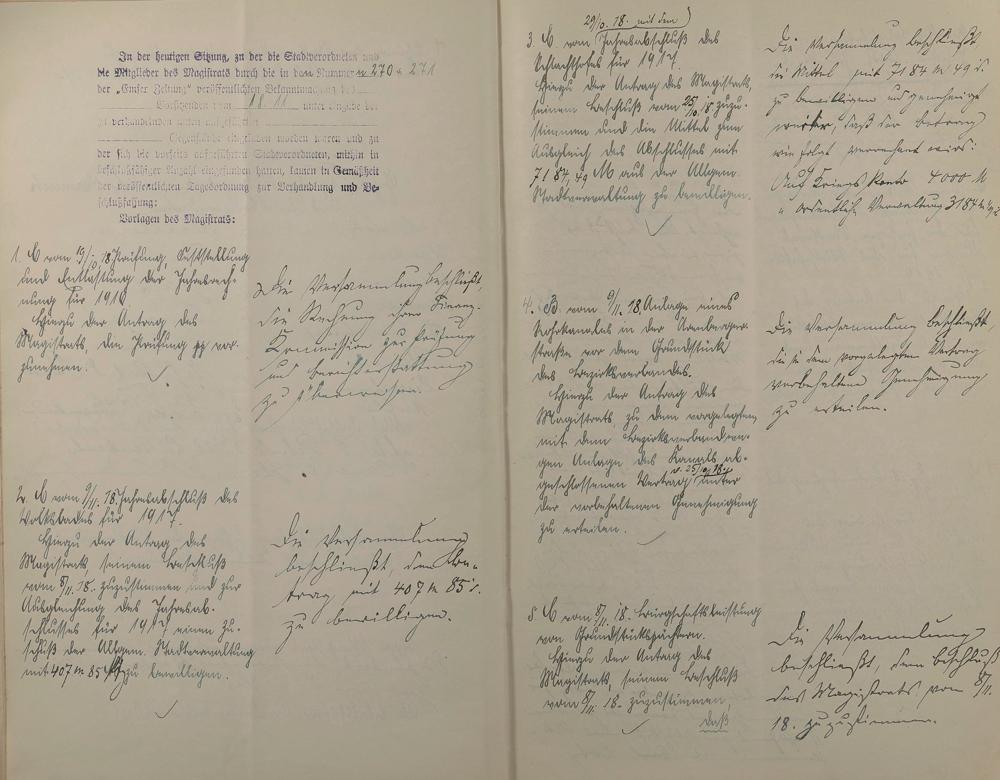 In der heutigen Sitzung, zu der die Stadtverordneten und
die Mitglieder des Magistrats durch die in den Nummern 270 u. 271
der „Emser Zeitung“ veröffentlichten Bekanntmachung des
Vorsitzenden vom 18. 11. unter Angabe der
zu verhandelnden unten aufgeführten
Gegenstände eingeladen worden waren und zu
der sich die vorseits aufgeführten Stadtverordneten, mithin in
beschlußfähiger Anzahl eingefunden hatten, kamen in Gemäßheit
der veröffentlichten Tagesordnung zur Verhandlung und Be-
schlußfassung:
Vorlagen des Magistrats:
1. C vom 19/10 18 Prüfung, Feststellung
und Entlastung der Jahresrech-
nung für 1916
Hierzu der Antrag des
Magistrats, die Prüfung pp vor-
zunehmen.
Die Versammlung beschließt,
die Rechnung ihrer Finanz-
Kommission zur Prüfung
und Berichterstattung
zu überweisen.
2. C vom 9/11. 18. Jahresabschluß des
Volksbades für 1917.
Hierzu der Antrag des
Magistrats, seinem Beschluß
vom 8/11. 18. zuzustimmen und zur
Ausgleichung des Jahresab-
schlusses für 1917 einen Zu-
schuß der Allgem. Stadtverwaltung
mit 407 M 85 zu bewilligen.
Die Versammlung
beschließt, den Be-
trag mit 407 M 85 d.
zu bewilligen.
29/10. 18. mit dem
3. C vom Jahresabschluß des
Schlachthofes für 1917.
Hierzu der Antrag des Magistrats,
seinem Beschluß vom 25/10. 18 zuzu-
stimmen und die Mittel zum
Ausgleich des Abschlusses mit
7184,49 M aus der Allgem.
Stadtverwaltung zu bewilligen.
Die Versammlung beschließt
die Mittel mit 7184 M 49 d.
zu bewilligen und genehmigt
weiter, daß der Betrag
wie folgt verrechnet wird:
Auf Kriegs Konto 4000 M
" Ordentliche Verwaltung 3184 M 49 d
4. B. vom 9/11. 18. Anlage eines
Rohrkanales in der Arenberger-
straße vor dem Grundstück
des Bezirksverbandes.
Hierzu der Antrag des
Magistrats, zu dem vorgelegten
mit dem Bezirksverband we-
gen Anlage des Kanals ab-
geschlossenen Vertrag v. 25/10 18 unter
der vorbehaltenen Genehmigung
zu erteilen.
Die Versammlung beschließt
die in dem vorgelegten Vertrag
vorbehaltene Genehmigung
zu erteilen.
5. C vom 8/11. 18. Bürgschaftsleistung
von Grundstückspächtern.
Hierzu der Antrag des
Magistrats, seinem Beschluß
vom 8/11. 18. zuzustimmen,
daß
Die Versammlung
beschließt, dem Beschluß
des Magistrats vom 8/11.
18. zuzustimmen.